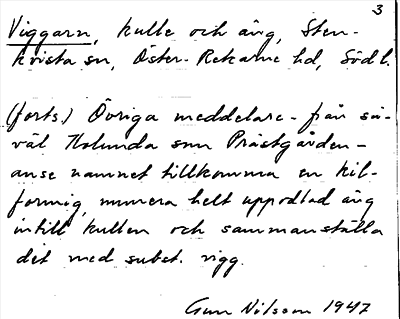 3
Viggarn, kulle och äng, Sten-
kvista sn, Öster-Rekarne hd, Södl.
(forts.) Övriga meddelare - från så-
väl Holunda som Prästgården -
anse namnet tillkomma en kil-
formig, numera helt uppodlad äng
intill kullen och sammanställa
det med subst. vigg.
Gun Nilsson 1947